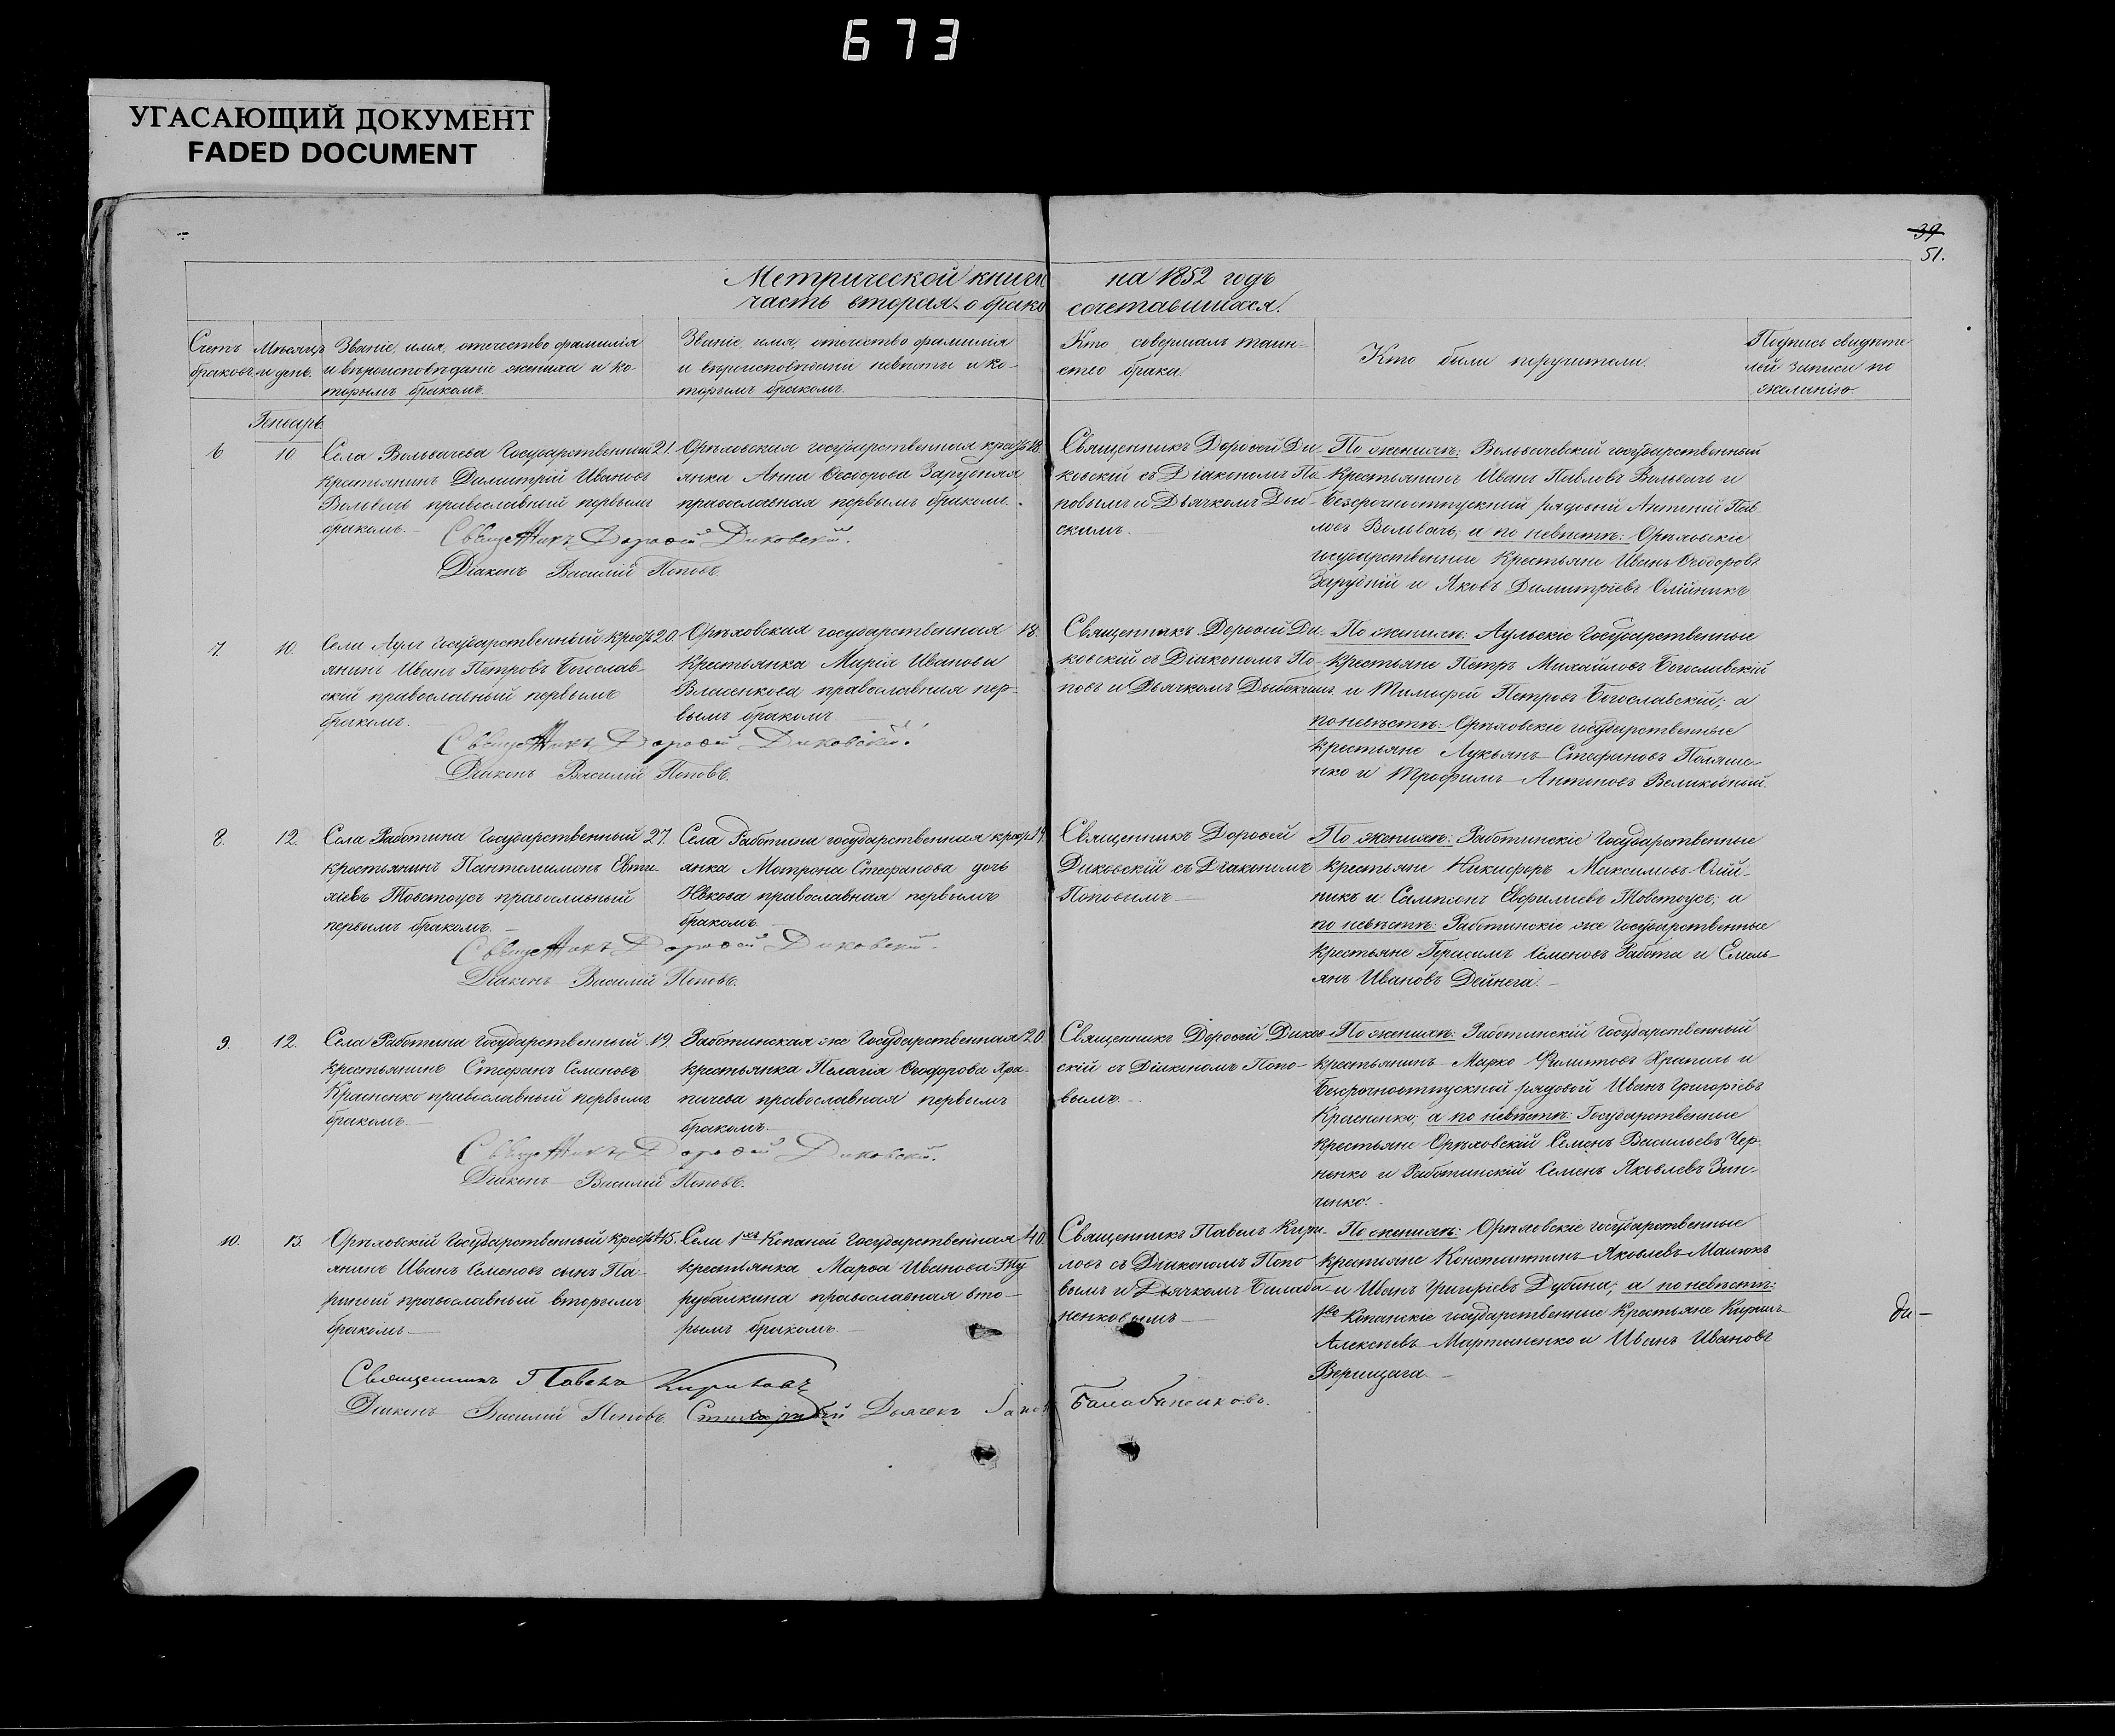 673
УГАСАЮЩИЙ ДОКУМЕНТ
FADED DOCUMENT
39
51.
Метрической книги на 1852 годъ
часть вторая о брако сочетавшихся.
Счетъ браковъ
Мѣсяцъ и день.
Званіе, имя, отечество фамилія
и вѣроисповѣданіе жениха и ко-
торымъ бракомъ.
Званіе, имя, отечество фамилія
и вѣроисповѣданіе невѣсты и ко-
торымъ бракомъ.
Кто совершалъ таин-
ство брака.
Кто были поручители.
Подпись свидѣте
лей записи по
желанію.
Январь.
6
10
Села Вольвачева Государственный
крестьянинъ Димитрій Ивановъ
Вольвачъ православный первымъ
бракомъ.
21.
Орѣховская государственная крест
янка Анна Ѳеодорова Зарудняя
православная первымъ бракомъ.
18.
Священникъ Дороѳей Ди-
ковскій съ Діакономъ По-
повымъ и Дьячкомъ
скимъ.
По женихѣ: Вольвачевскій государственный
крестьянинъ Иванъ Павловъ Вольвачъ и
безсрочноотпускный рядовый Антоній Пав-
ловъ Вольвачъ; а по невѣстѣ: Орѣховскіе
государственные крестьяне Иванъ Ѳеодоровъ
Зарудній и Яковъ Димитріевъ Олійникъ
Священникъ Дороѳей Диковскій.
Діаконъ Василій Поповъ.
7.
10.
Села Аулъ Государственный крест
янинъ Иванъ Петровъ Богослав-
скій православный первымъ
бракомъ.
20.
Орѣховская государственная
крестьянка Марія Иванова
Власенкова православная пер-
вымъ бракомъ
18.
Священникъ Дороѳей Ди-
ковскій съ Діакономъ По-
повъ и Дьячкомъ
По женихѣ: Аульскіе Государственные
крестьяне Петръ Михайловъ Богославскій
и Тимофей Петровъ Богославскій; а
по невѣстѣ: Орѣховскіе государственные
крестьяне Лукьянъ Стефановъ
и Трофимъ Антоновъ Великодный.
Священникъ Дороѳей Диковскій.
Діаконъ Василій Поповъ.
8.
12.
Села Работина Государственный
крестьянинъ Пантелимонъ
Товстоусъ православный
первымъ бракомъ.
27.
Села Работина государственная крест
янка Матрона Стефанова дочь
православная первымъ
бракомъ.
19.
Священникъ Дороѳей
Диковскій съ Діакономъ
Поповымъ
По женихѣ: Работинскіе Государственные
крестьяне Никифоръ Максимовъ Олій-
никъ и Сампсонъ Товстоусъ; а
по невѣстѣ: Работинскіе же Государственные
крестьяне Герасимъ Семеновъ Работа и Емель-
янъ Ивановъ Дейнега.
Священникъ Дороѳей Диковскій.
Діаконъ Василій Поповъ.
9.
12.
Села Работина Государственный
крестьянинъ Стефанъ Семеновъ
Красненко православный первымъ
бракомъ.
19.
Работинская же Государственная
крестьянка Пелагія Ѳеодорова Хра-
пачева православная первымъ
бракомъ.
20.
Священникъ Дороѳей Диков-
скій съ Діакономъ Попо-
вымъ.
По женихѣ: Работинскій Государственный
крестьянинъ Марко Храпачъ и
безсрочноотпускный рядовой Иванъ Григорьевъ
Красненко; а по невѣстѣ: Государственные
крестьяне Орѣховскій Семенъ Васильевъ Чер-
ненко и Работинскій Семенъ Яковлевъ Зин-
ченко.
Священникъ Дороѳей Диковскій.
Діаконъ Василій Поповъ.
10.
13.
Орѣховскій Государственный крест
янинъ Иванъ Семеновъ сынъ
православный вторымъ
бракомъ.
45.
Села 1хъ Копаней Государственная
крестьянка Марѳа Иванова
православная вто-
рымъ бракомъ.
40.
Священникъ Павелъ Кири-
ловъ съ Діакономъ Попо
вымъ и Дьячкомъ Балаба
ненковымъ
По женихѣ: Орѣховскіе государственные
крестьяне Константинъ Яковлевъ Малюкъ
и Иванъ Григорьевъ Дубина; а по невѣстѣ:
Копанскіе государственные крестьяне Кирилъ
Алексѣевъ Мартиненко и Иванъ Ивановъ
Верещага.
ди-
Священникъ Павелъ Кириловъ
Діаконъ Василій Поповъ. Дьячекъ Балабаненковъ.